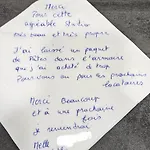 Merci
Pour cette
agréable Station
très beau et très propre
J'ai laissé un paquet
de Pâtes dans l'armoire
que j'ai acheté de trop
Pour vous ou pour les prochains
locataires
Merci Beaucoup
et à une prochaine
fois
Je reviendrai
Melle